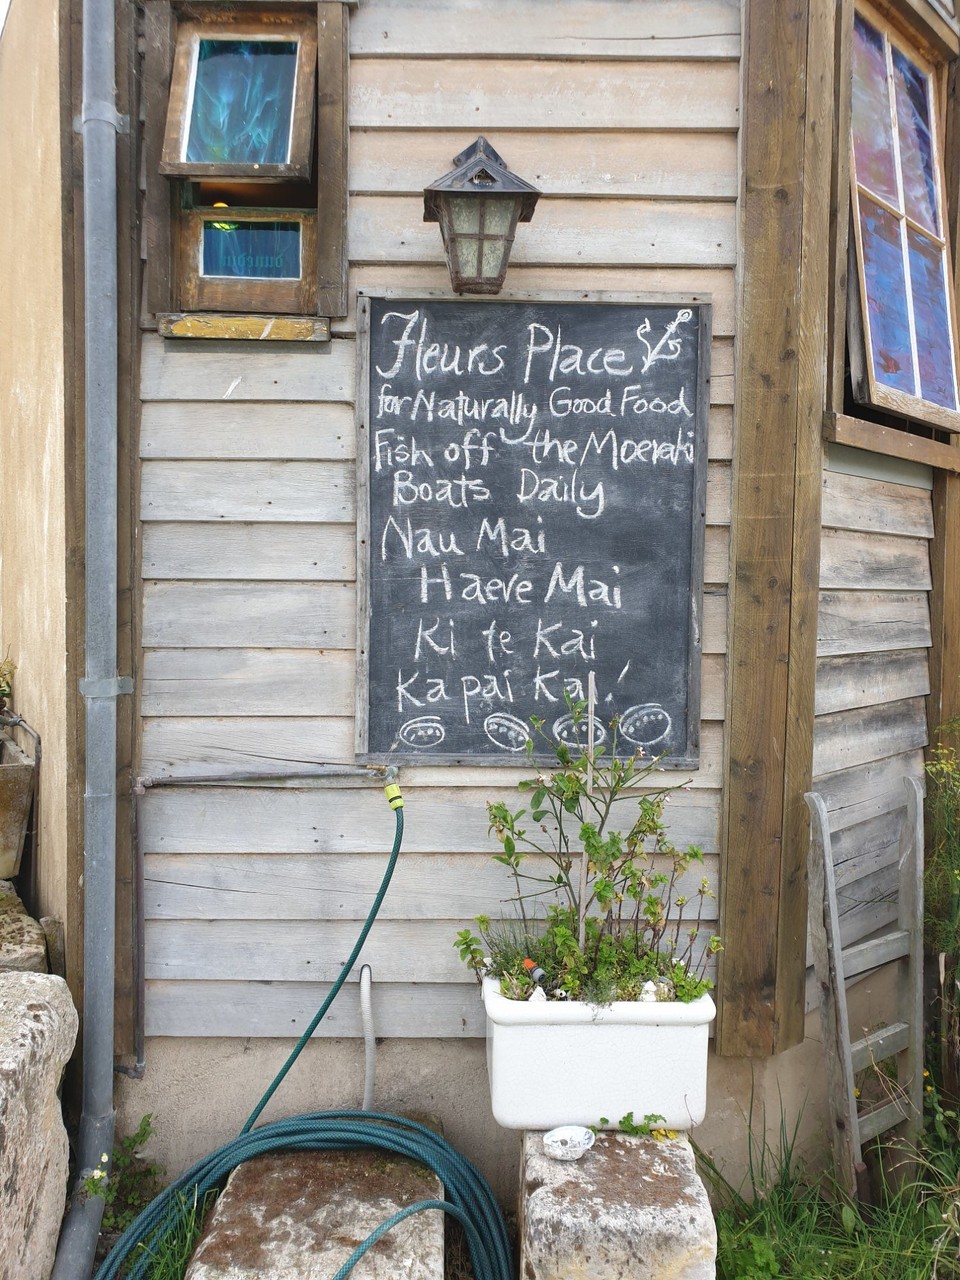 Fleurs Place
for Naturally Good Food
Fish off the Moeraki
Boats Daily
Nau Mai
Haeve Mai
Ki te Kai
Ka pai Kai!